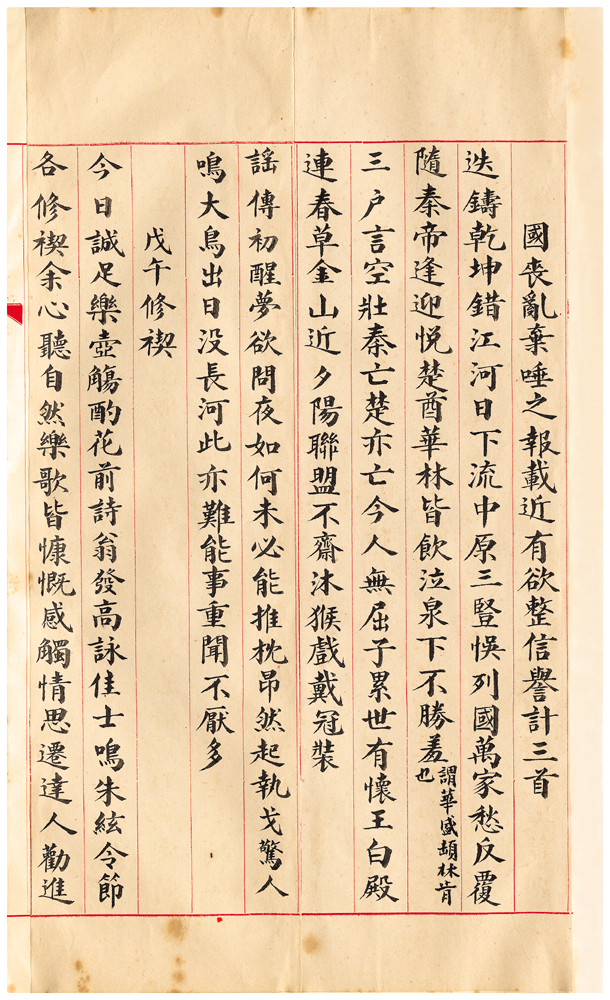 國喪亂棄唾之報載近有欲整信譽計三首
迭鑄乾坤錯江河日下流中原三豎悞列國萬家愁反覆
隨秦帝逢迎悅楚酋華林皆飲泣泉下不勝羞謂華盛頓林肯也
三户言空壯秦亡楚亦亡今人無屈子累世有懷王白殿
連春草金山近夕陽聯盟不齋沐猴戲戴冠裝
謡傳初醒夢欲問夜如何未必能推枕昂然起執戈驚人
鳴大鳥出日没長河此亦難能事重聞不厭多
戊午修禊
今日誠足樂壺觴酌花前詩翁發高詠佳士鳴朱絃令節
各修禊余心聽自然樂歌皆慷慨感觸情思遷達人勸進